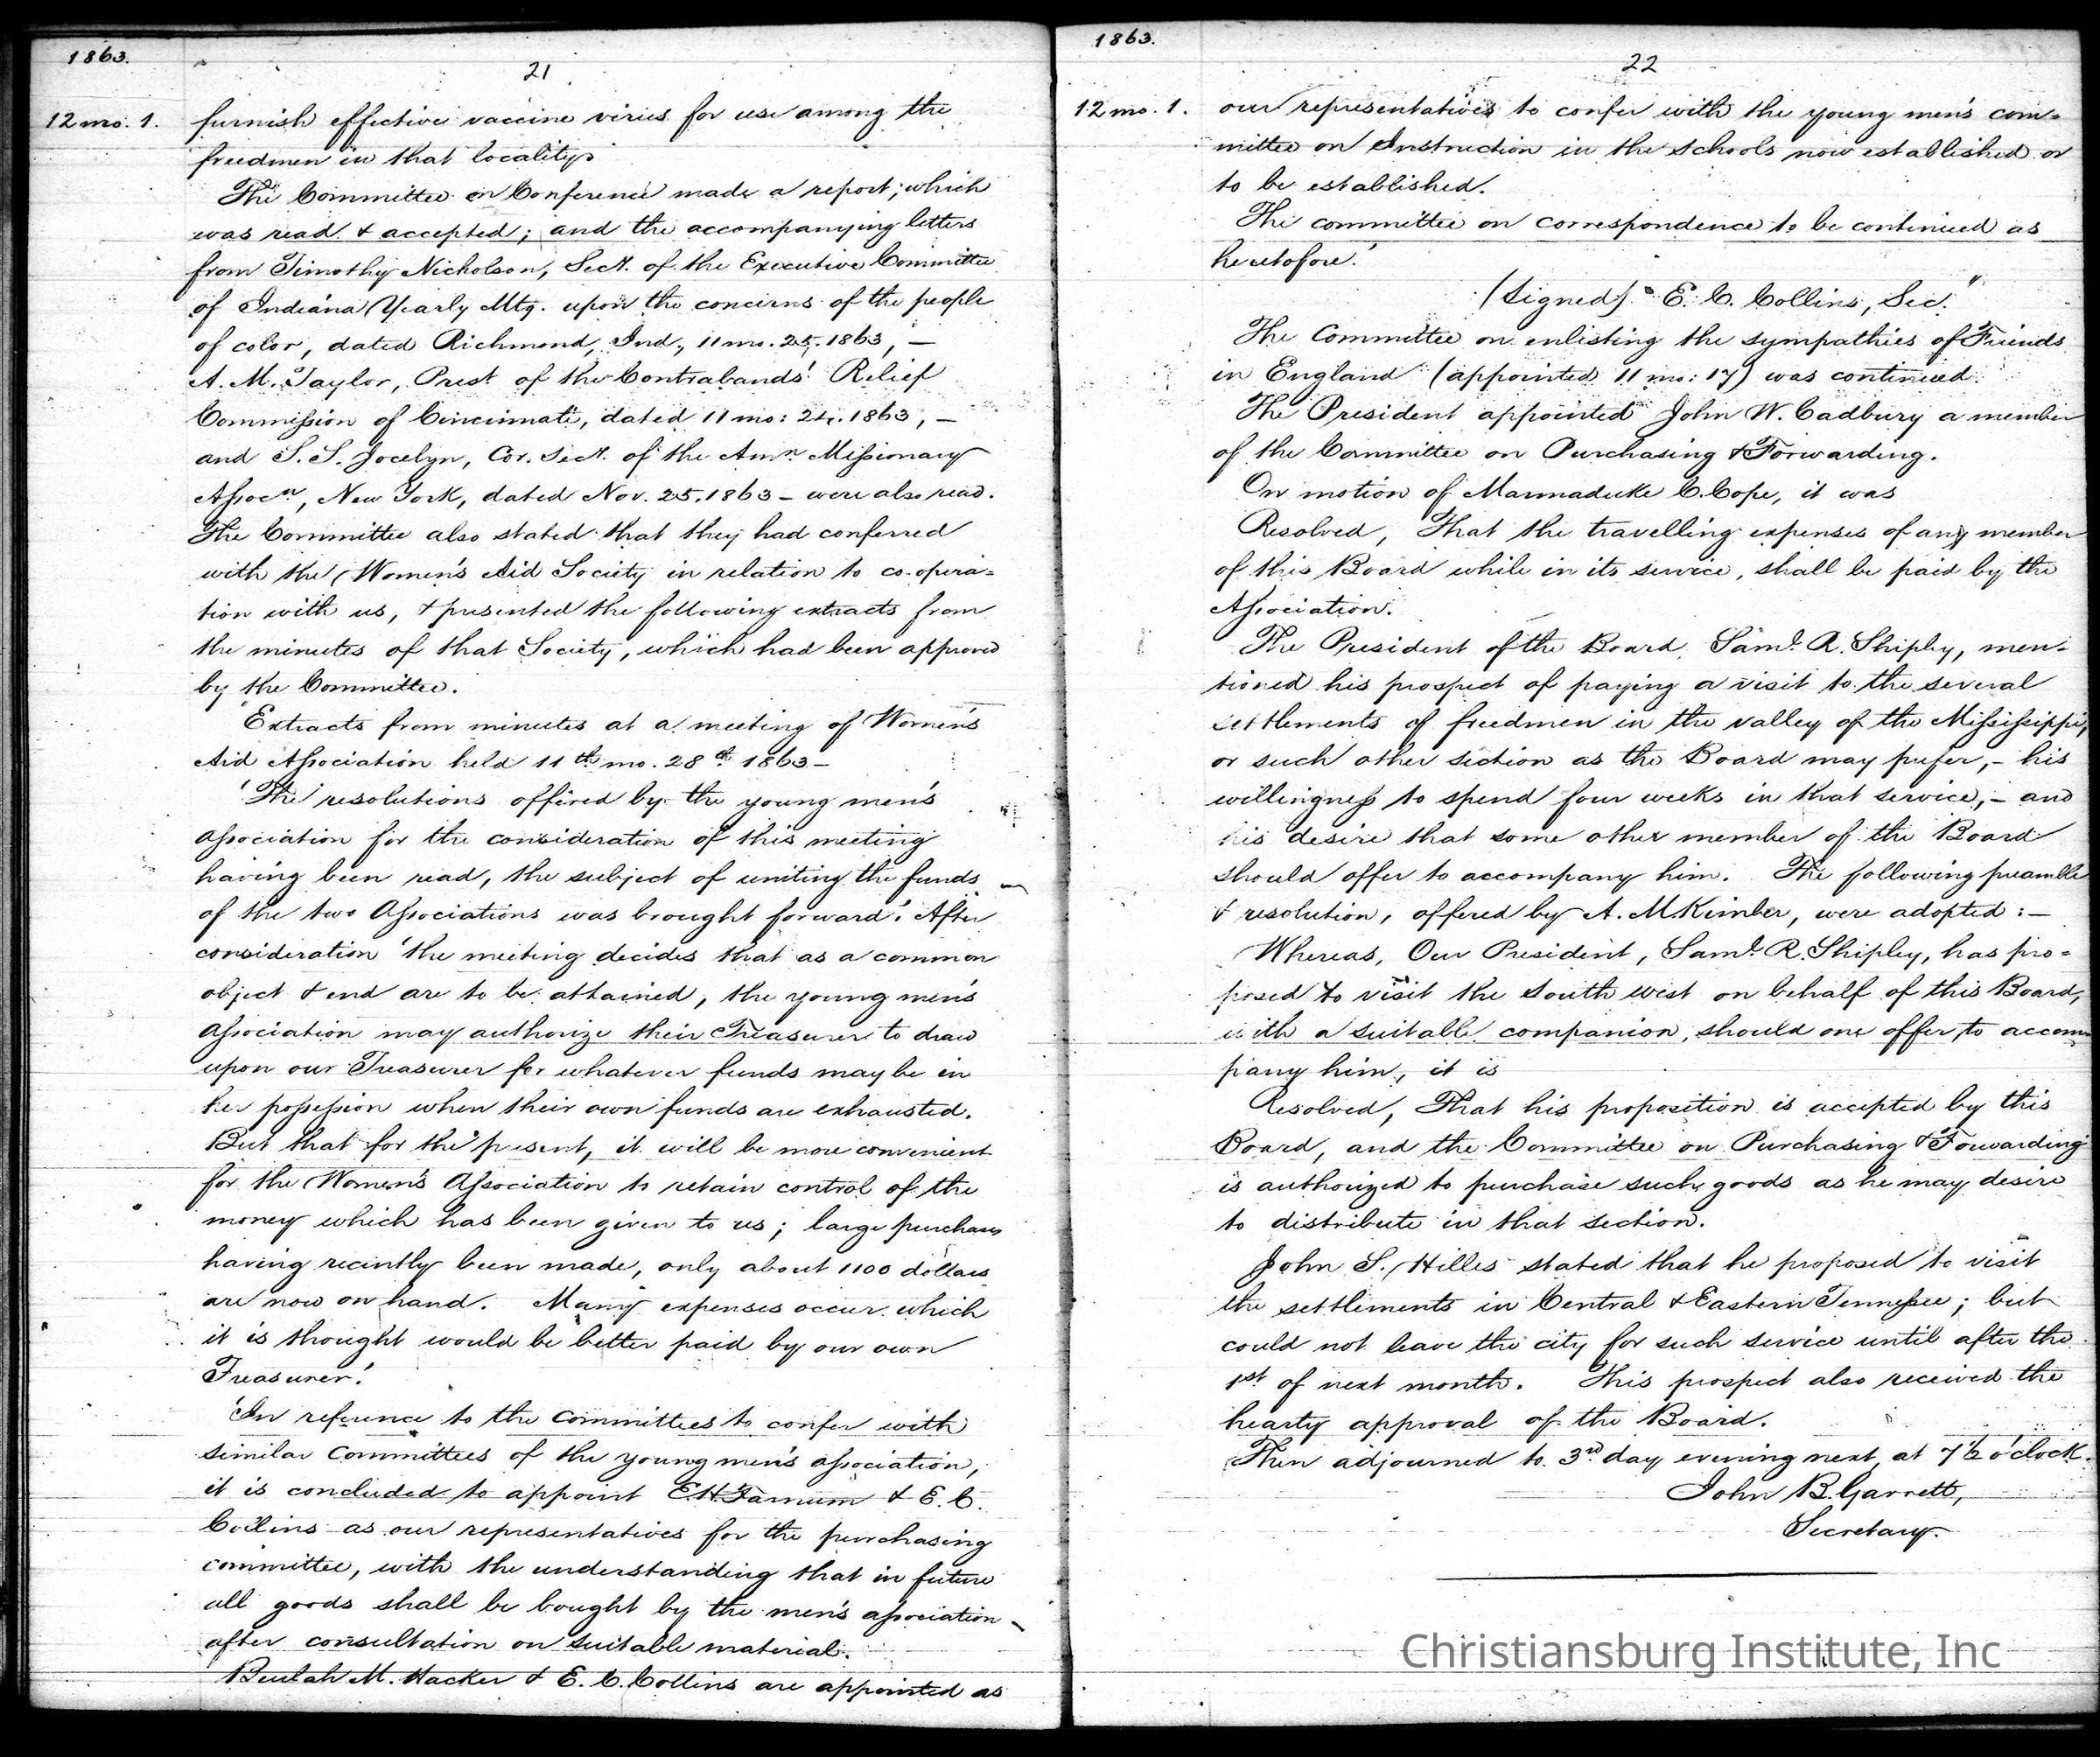 1863.
21
12 mo. 1. furnish effective vaccine virus for use among the
freedmen in that locality.
The Committee on Conference made a report; which
was read & accepted; and the accompanying letters
from Timothy Nicholson, Sect. of the Executive Committee
of Indiana Yearly Mtg. upon the concerns of the people
of color, dated Richmond, Ind., 11 mo. 25. 1863, —
A. M. Taylor, Prest. of the Contrabands' Relief
Commission of Cincinnati, dated 11 mo: 24. 1863, —
and S. S. Jocelyn, Cor. Sect. of the Amn. Missionary
Assocn, New York, dated Nov. 25. 1863 – were also read.
The Committee also stated that they had conferred
with the Women's Aid Society in relation to co-opera=
tion with us, & presented the following extracts from
the minutes of that Society, which had been approved
by the Committee.
"Extracts from minutes at a meeting of Women's
Aid Association held 11th mo. 28th 1863 –
'The resolutions offered by the young men's
association for the consideration of this meeting
having been read, the subject of uniting the funds
of the two Associations was brought forward.' After
consideration 'the meeting decides that as a common
object & end are to be attained, the young men's
association may authorize their Treasurer to draw
upon our Treasurer for whatever funds may be in
her possession when their own funds are exhausted.
But that for the present, it will be more convenient
for the Women's Association to retain control of the
money which has been given to us; large purchases
having recently been made, only about 1100 dollars
are now on hand. Many expenses occur which
it is thought would be better paid by our own
Treasurer.'
'In reference to the committees to confer with
similar committees of the young men's association,
it is concluded to appoint E. H. Farnum & E. C.
Collins as our representatives for the purchasing
committee, with the understanding that in future
all goods shall be bought by the men's association –
after consultation on suitable material.
Beulah M. Hacker & E. C. Collins are appointed as
1863.
22
12 mo. 1. our representatives to confer with the young men's com=
mittee on Instruction in the schools now established or
to be established.
The committee on correspondence to be continued as
heretofore.'
(Signed) E. C. Collins, Sec."
The Committee on enlisting the sympathies of Friends
in England (appointed 11 mo: 17) was continued.
The President appointed John W. Cadbury a member
of the Committee on Purchasing & Forwarding.
On motion of Marmaduke C. Cope, it was
Resolved, That the travelling expenses of any member
of this Board while in its service, shall be paid by the
Association.
The President of the Board, Saml. R. Shipley, men=
tioned his prospect of paying a visit to the several
settlements of freedmen in the valley of the Mississippi,
or such other section as the Board may prefer, – his
willingness to spend four weeks in that service, – and
his desire that some other member of the Board
should offer to accompany him. The following preamble
& resolution, offered by A. M Kimber, were adopted: —
Whereas, Our President, Saml. R. Shipley, has pro=
posed to visit the South west on behalf of this Board,
with a suitable companion, should one offer to accom
pany him, it is
Resolved, That his proposition is accepted by this
Board, and the Committee on Purchasing & Forwarding
is authorized to purchase such goods as he may desire
to distribute in that section.
John S. Hilles stated that he proposed to visit
the settlements in Central & Eastern Tennessee; but
could not leave the city for such service until after the
1st of next month. This prospect also received the
hearty approval of the Board.
Then adjourned to 3rd day evening next, at 7½ o'clock.
John B. Garrett,
Secretary.
Christiansburg Institute, Inc